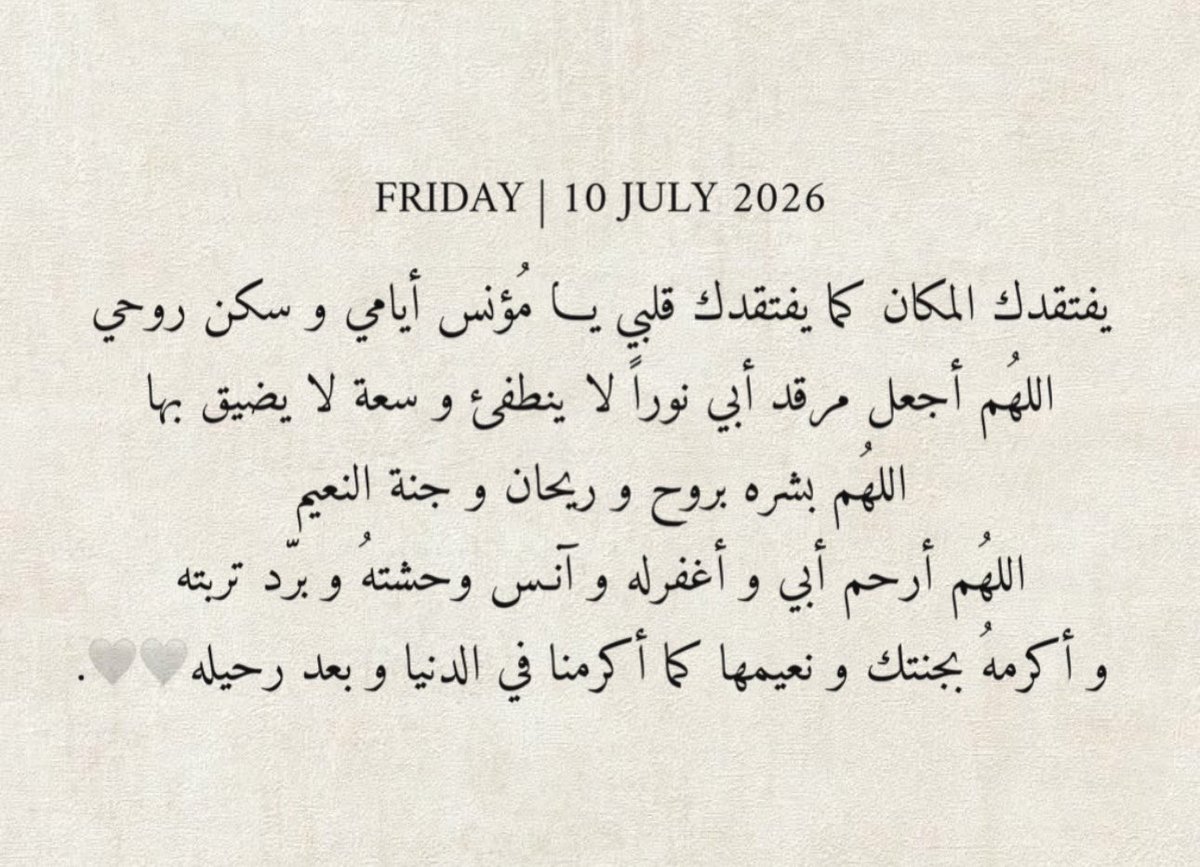 FRIDAY | 10 JULY 2026
يفتقدك المكان كما يفتقدك قلبي يــا مُؤنس أيامي و سكن روحي
اللهُم أجعل مرقد أبي نوراً لا ينطفئ و سعة لا يضيق بها
اللهُم بشره بروح و ريحان و جنة النعيم
اللهُم أرحم أبي و أغفرله و آنـس وحشتهُ و برّد تربته
و أكرمهُ بجنتك و نعيمها كما أكرمنا في الدنيا و بعد رحيله🩶🩶.